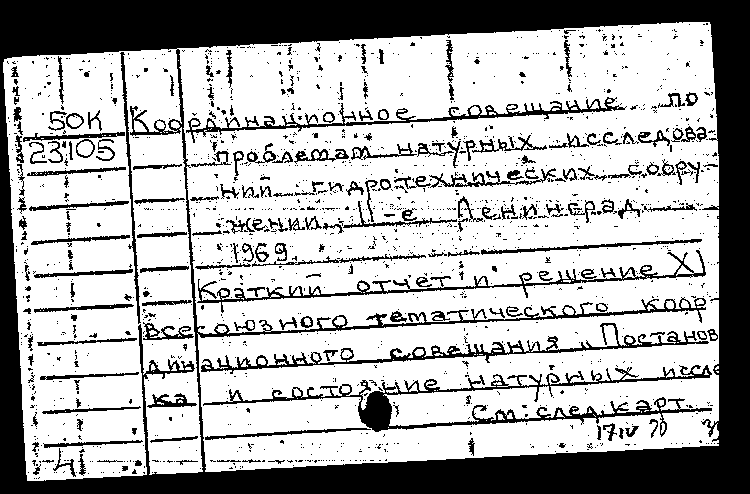 50К Координационное совещание по
23105 проблемам натурных исследова-
ний гидротехнических соору-
жений. 11-е Ленинград
1969.
Краткий отчет и решение XI
Всесоюзного тематического коор-
динационного совещания „Постанов
ка и состояние натурных иссле
См. след. карт.
17 IV 70